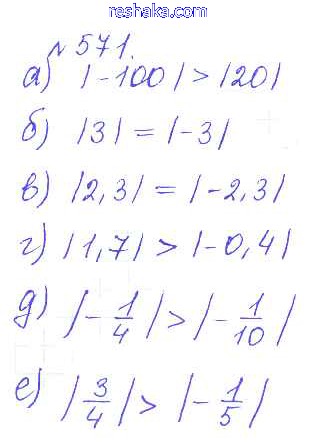 reshaka.com
№ 571.
а) |-100| > |20|
б) |3| = |-3|
в) |2,3| = |-2,3|
г) |1,7| > |-0,4|
д) |-1/4| > |-1/10|
е) |3/4| > |-1/5|